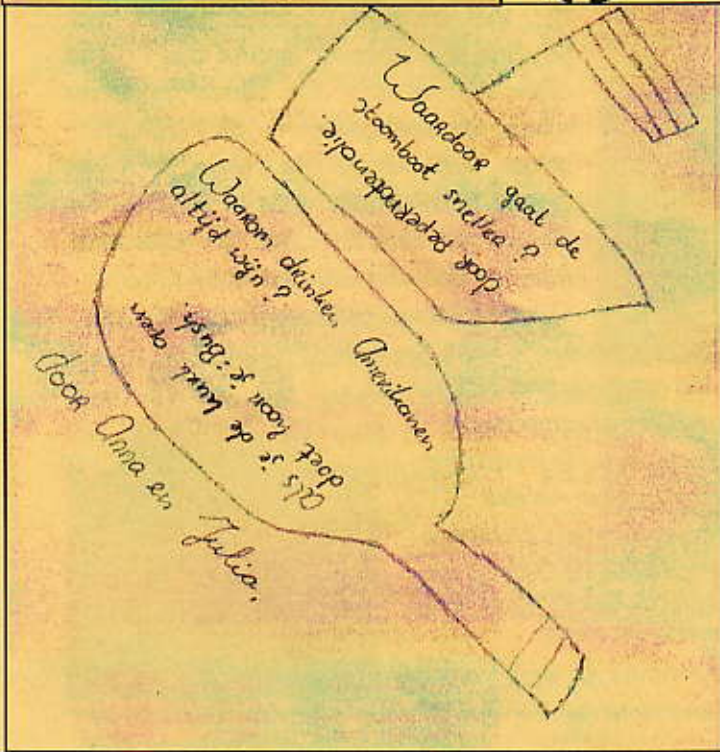 Waardoor gaat de
stoomboot sneller?
door pepernotenolie.
Waarom drinken Amerikanen
altijd wijn?
als je de kurk open
doet hoor je: Bush.
door Anna en Julia.